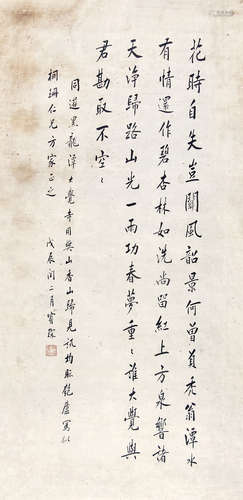 花時自失豈關風韶景何曾負禿翁潭水
有情還作碧杏林如洗尚留紅上方泉響諸
天淨歸路山光一雨功春夢重重誰大覺與
君勘取不空空
同遊黑龍潭大覺寺
山香山歸見
均
寫似
桐珊仁兄方家正之
戊辰閏二月寶